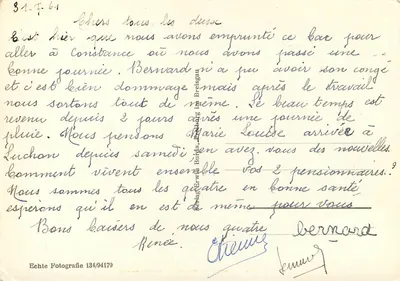 31.7.61
Chers tous les deux
C'est hier que nous avons emprunté ce bac pour
aller à Constance où nous avons passé une
bonne journée. Bernard n'a pu avoir son congé
et c'est bien dommage mais après le travail
nous sortons tout de même. Le beau temps est
revenu depuis 2 jours après une journée de
pluie. Nous pensons Marie Louise arrivée à
Luchon depuis samedi en avez vous des nouvelles
Comment vivent ensemble vos 2 pensionnaires?
Nous sommes tous les quatre en bonne santé
esperons qu'il en est de même pour vous
Bons baisers de nous quatre
Renée. Etienne bernard
Echte Fotografie 134/94179